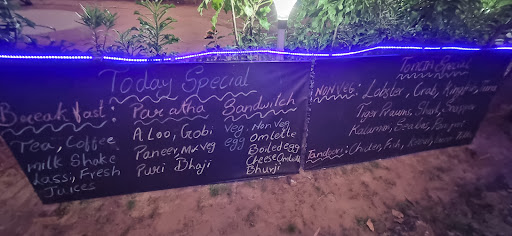 Today Special
Breakfast:
Tea, Coffee
Milk Shake
Lassi, Fresh
Juices
Paratha
Aloo, Gobi
Paneer, Mix Veg
Puri Bhaji
Sandwitch
Veg. Non Veg
egg Omlette
Boiled egg
Cheese Omlette
Bhurji
Special
Non Veg: Lobster, Crab, Kingfish, Tuna
Tiger Prawns, Shark, Snapper
Kalamari, Seabas,
Tandoori: Chicken, Fish,